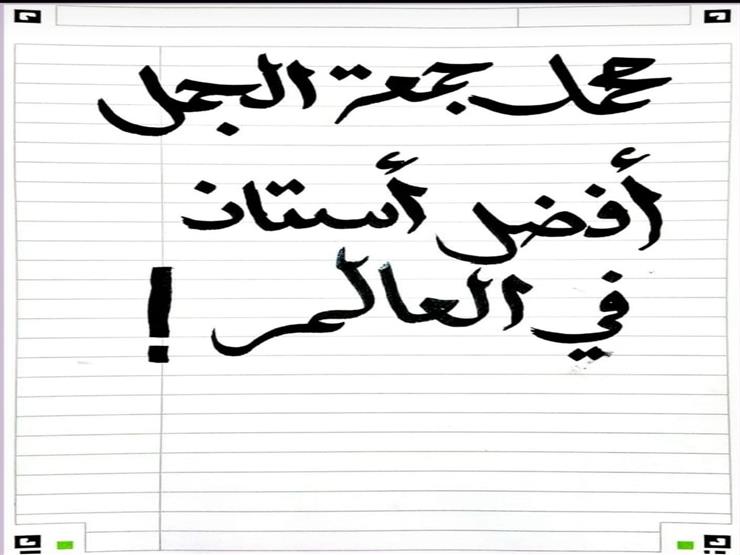 محمد جمعة الجمل
أفضل أستاذ
في العالم !